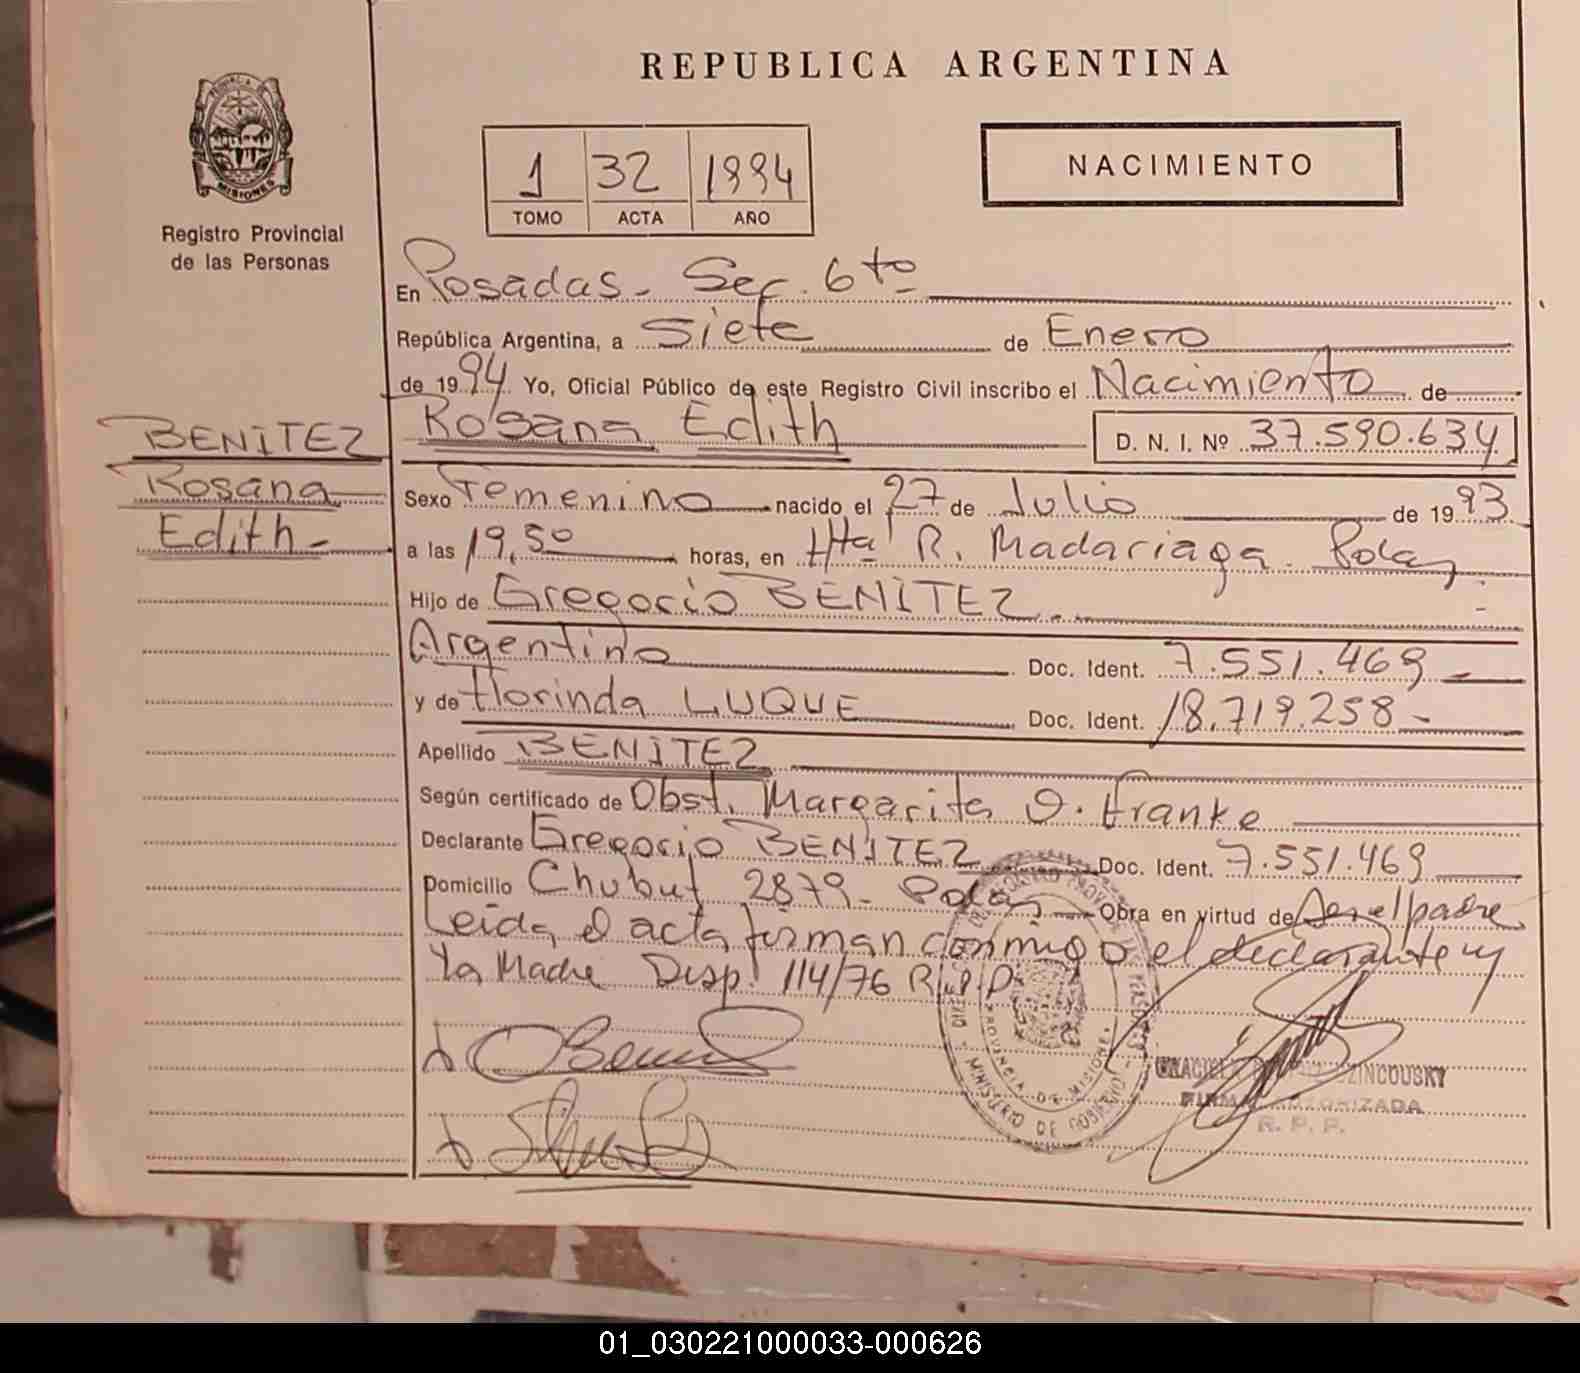 REPUBLICA ARGENTINA
MISIONES
Registro Provincial
de las Personas
1 32 1994
TOMO ACTA AÑO
NACIMIENTO
En Posadas - Sec. 6to
República Argentina, a Siete de Enero
de 1994 Yo, Oficial Público de este Registro Civil inscribo el Nacimiento de
Rosana Edith D. N. I. Nº 37.590.634
BENITEZ
Rosana
Edith -
Sexo Femenino nacido el 27 de Julio de 1993
a las 19,50 horas, en Htal R. Madariaga. Pdas
Hijo de Gregorio BENITEZ
Argentino Doc. Ident. 7.551.469
y de Florinda LUQUE Doc. Ident. 18.719.258 -
Apellido BENITEZ
Según certificado de Obst. Margarita O. Franke
Declarante Gregorio BENITEZ Doc. Ident. 7.551.469
Domicilio Chubut 2879 - Pdas Obra en virtud de Ser el padre
Leida el acta firman conmigo el declarante y
La Madre Disp. 114/76 R.P.P.
PROVINCIA DE MISIONES
MINISTERIO DE GOBIERNO
FIRMA AUTORIZADA
R. P. P.
01_030221000033-000626